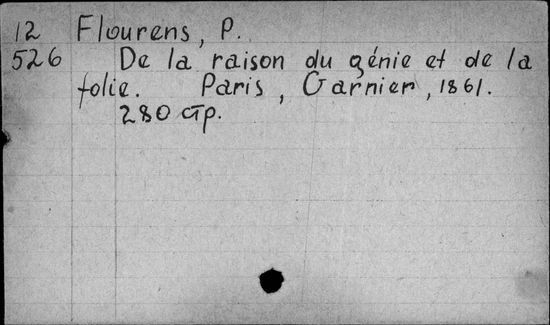 12 Flourens, P.
526 De la raison du génie et de la
folie. Paris, Garnier, 1861.
280 стр.